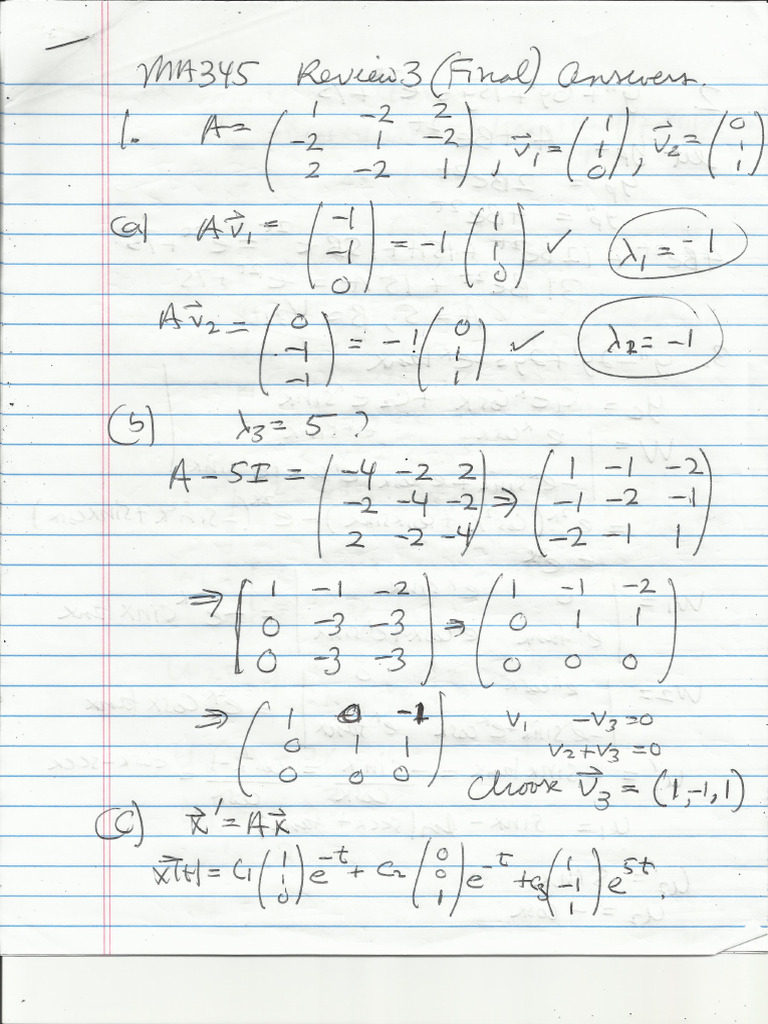 MA345 Review 3 (Final) Answers.
1. A = ( 1 -2 2
-2 1 -2
2 -2 1 ) , v⃗₁ = ( 1
1
0 ) , v⃗₂ = ( 0
1
1 )
(a) A v⃗₁ = ( -1
-1
0 ) = -1 ( 1
1
0 ) ✓ λ₁ = -1
A v⃗₂ = ( 0
-1
-1 ) = -1 ( 0
1
1 ) ✓ λ₂ = -1
(b) λ₃ = 5 ?
A - 5I = ( -4 -2 2
-2 -4 -2
2 -2 -4 ) ⇒ ( 1 -1 -2
-1 -2 -1
-2 -1 1 )
⇒ [ 1 -1 -2
0 -3 -3
0 -3 -3 ) ⇒ ( 1 -1 -2
0 1 1
0 0 0 )
⇒ ( 1 0 -1
0 1 1
0 0 0 ) v₁ -v₃ = 0
v₂ + v₃ = 0
Choose v⃗₃ = (1, -1, 1)
(c) x⃗' = A x⃗
x⃗(t) = c₁ ( 1
1
0 ) e^-t + c₂ ( 0
0
1 ) e^-t + c₃ ( 1
-1
1 ) e^5t.